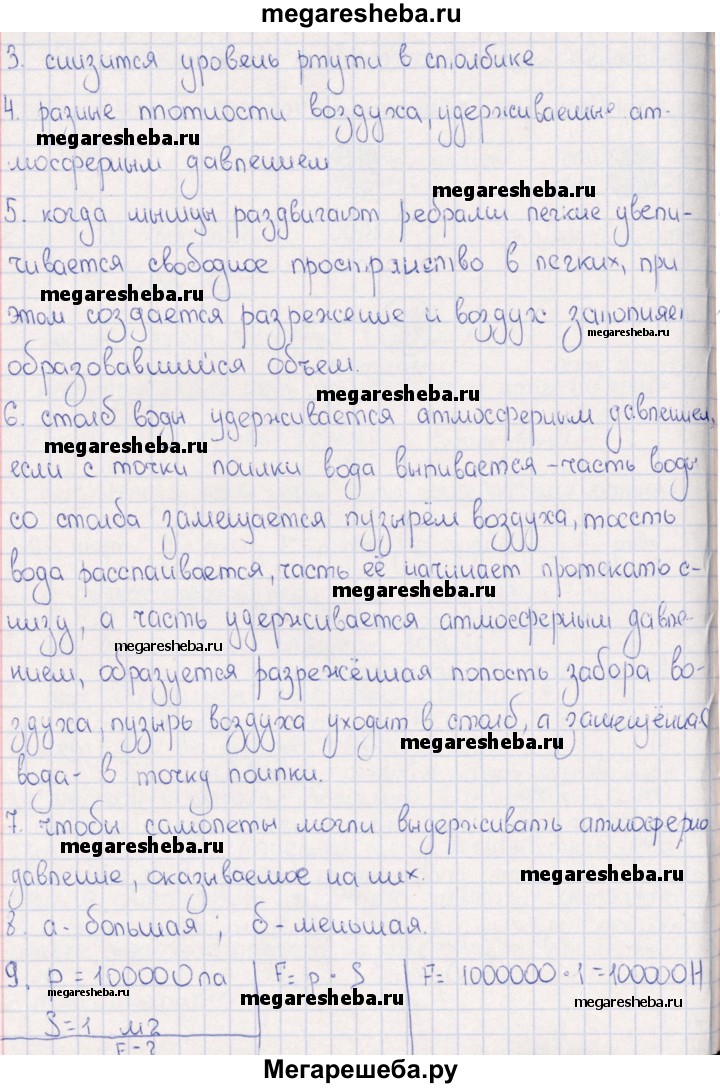 megaresheba.ru
3. снизится уровень ртути в столбике
4. разные плотности воздуха, удерживаемые ат-
megaresheba.ru
мосферным давлением
megaresheba.ru
5. когда мышцы раздвигают ребрами легкие увели-
чивается свободное пространство в легких, при
megaresheba.ru
этом создается разрежение и воздух заполняет
megaresheba.ru
образовавшийся объем.
megaresheba.ru
6. столб воды удерживается атмосферным давлением,
megaresheba.ru
если с точки поилки вода выпивается - часть воды
со столба замещается пузырём воздуха, тоесть
вода расслаивается, часть её начинает протекать с-
megaresheba.ru
низу, а часть удерживается атмосферным давле-
megaresheba.ru
нием, образуется разрежённая полость забора во-
здуха, пузырь воздуха уходит в столб, а замещённая
megaresheba.ru
вода - в точку поилки.
7. чтобы самолеты могли выдерживать атмосферно
megaresheba.ru
давление, оказываемое на них.
megaresheba.ru
8. а - большая; б - меньшая.
9. p = 100000 па F = p · S F = 1000000 · 1 = 100000 Н
megaresheba.ru megaresheba.ru megaresheba.ru
S = 1 м2
F - ?
Мегарешеба.ру